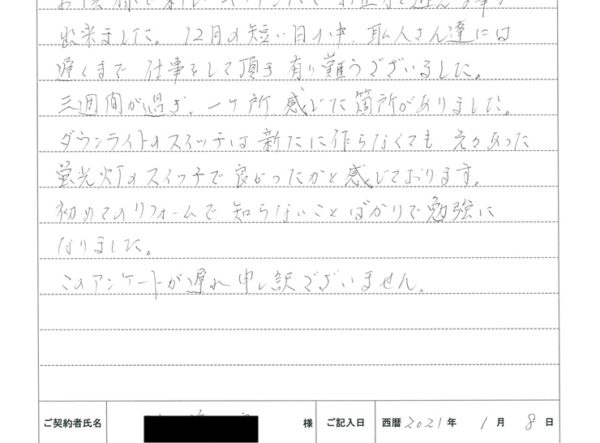 お陰様で新しいキッチンにてお正月を迎える事が
出来ました。12月の短い日の中、職人さん達には
遅くまで仕事をして頂き有り難うございました。
三週間が過ぎ、一ヶ所感じた箇所がありました。
ダウンライトのスイッチは新たに作らなくても元々あった
蛍光灯のスイッチで良かったかと感じております。
初めてのリフォームで知らないことばかりで勉強に
なりました。
このアンケートが遅れ申し訳ございません。
ご契約者氏名 様 ご記入日 西暦 2021年 1月 8日